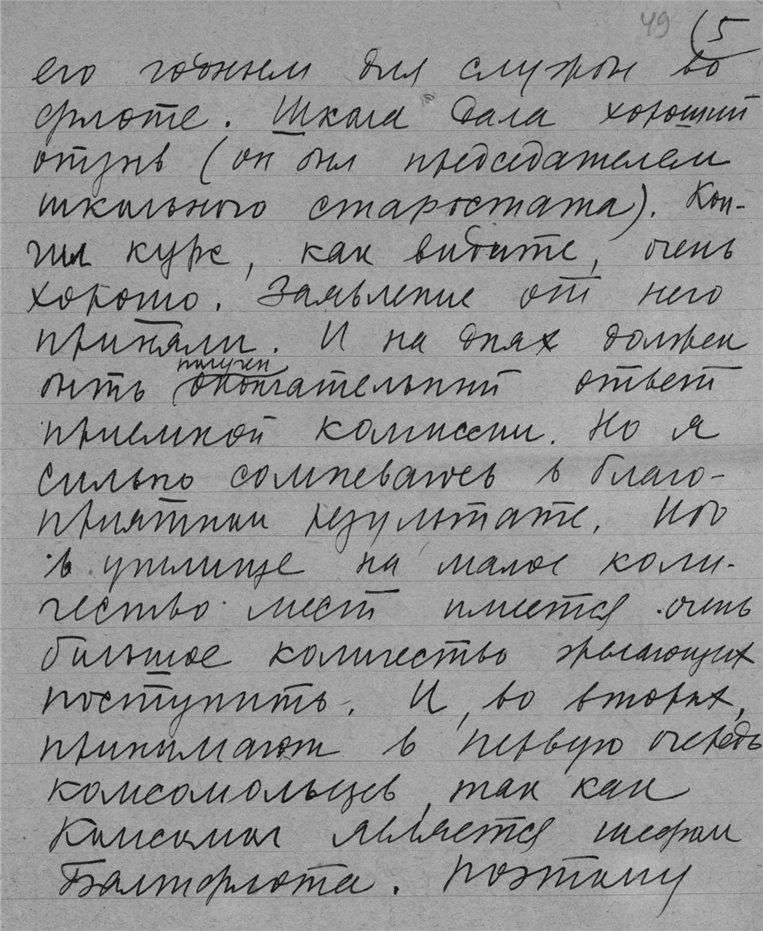 49 (5
его годным для службы во
флоте. Школа дала хороший
отзыв (он был председателем
школьного старостата). Кон-
чил курс, как видите, очень
хорошо. Заявление от него
приняли. И на днях должен
быть получен окончательный ответ
приемной комиссии. Но я
сильно сомневаюсь в благо-
приятном результате. Ибо
в училище на малое коли-
чество мест имеется очень
большое количество желающих
поступить. И, во вторых,
принимают в первую очередь
комсомольцев, так как
Комсомол является шефом
Балтфлота. Поэтому